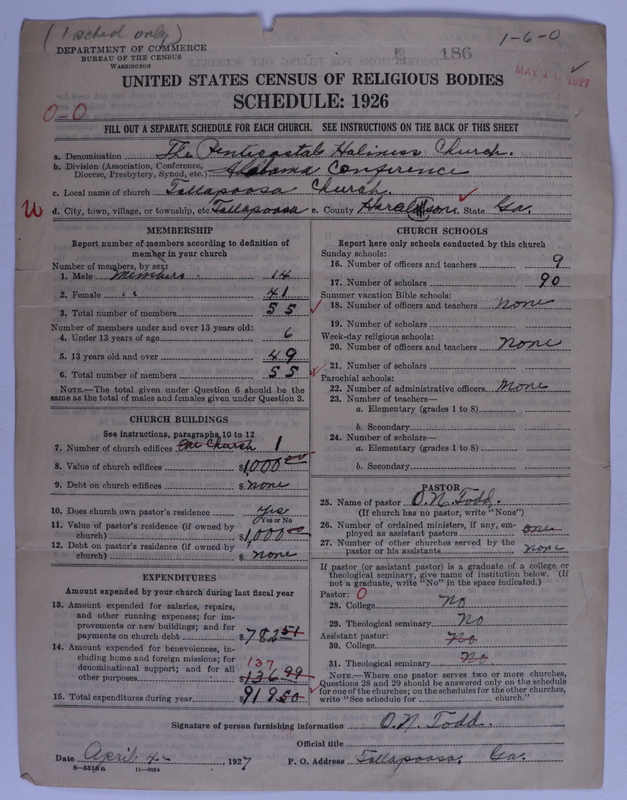 (1 sched only)
1-6-0
DEPARTMENT OF COMMERCE
BUREAU OF THE CENSUS
WASHINGTON
186
MAY 1927
UNITED STATES CENSUS OF RELIGIOUS BODIES
SCHEDULE: 1926
0-0
FILL OUT A SEPARATE SCHEDULE FOR EACH CHURCH. SEE INSTRUCTIONS ON THE BACK OF THIS SHEET
a. Denomination The Pentecostal Holiness Church.
b. Division (Association, Conference, Diocese, Presbytery, Synod, etc.) Alabama Conference
c. Local name of church Tallapoosa Church.
d. City, town, village, or township, etc. Tallapoosa e. County Haralson. State Ga.
MEMBERSHIP
Report number of members according to definition of
member in your church
Number of members, by sex:
1. Male Members 14
2. Female " " 41
3. Total number of members 55
Number of members under and over 13 years old:
4. Under 13 years of age 6
5. 13 years old and over 49
6. Total number of members 55
NOTE.—The total given under Question 6 should be the
same as the total of males and females given under Question 3.
CHURCH BUILDINGS
See instructions, paragraphs 10 to 12
7. Number of church edifices One Church 1
8. Value of church edifices $1,000 00
9. Debt on church edifices $ none
10. Does church own pastor's residence yes
(Yes or No)
11. Value of pastor's residence (if owned by
church) $1,000 00
12. Debt on pastor's residence (if owned by
church) $ none
EXPENDITURES
Amount expended by your church during last fiscal year
13. Amount expended for salaries, repairs,
and other running expenses; for im-
provements or new buildings; and for
payments on church debt $782 51
14. Amount expended for benevolences, in-
cluding home and foreign missions; for
denominational support; and for all 137
other purposes $136 99
15. Total expenditures during year $919 50
CHURCH SCHOOLS
Report here only schools conducted by this church
Sunday schools:
16. Number of officers and teachers 9
17. Number of scholars 90
Summer vacation Bible schools:
18. Number of officers and teachers None
19. Number of scholars
Week-day religious schools:
20. Number of officers and teachers None
21. Number of scholars
Parochial schools:
22. Number of administrative officers None
23. Number of teachers—
a. Elementary (grades 1 to 8)
b. Secondary
24. Number of scholars—
a. Elementary (grades 1 to 8)
b. Secondary
PASTOR
25. Name of pastor O. N. Todd.
(If church has no pastor, write "None")
26. Number of ordained ministers, if any, em-
ployed as assistant pastors
27. Number of other churches served by the
pastor or his assistants none
If pastor (or assistant pastor) is a graduate of a college or
theological seminary, give name of institution below. (If
not a graduate, write "No" in the space indicated.)
Pastor: 0
28. College No
29. Theological seminary No
Assistant pastor:
30. College No
31. Theological seminary No
NOTE.—Where one pastor serves two or more churches,
Questions 28 and 29 should be answered only on the schedule
for one of the churches; on the schedules for the other churches,
write "See schedule for church."
Signature of person furnishing information O. N. Todd.
Official title
Date April 4-, 1927 P. O. Address Tallapoosa, Ga.
8-5518a 11-9034